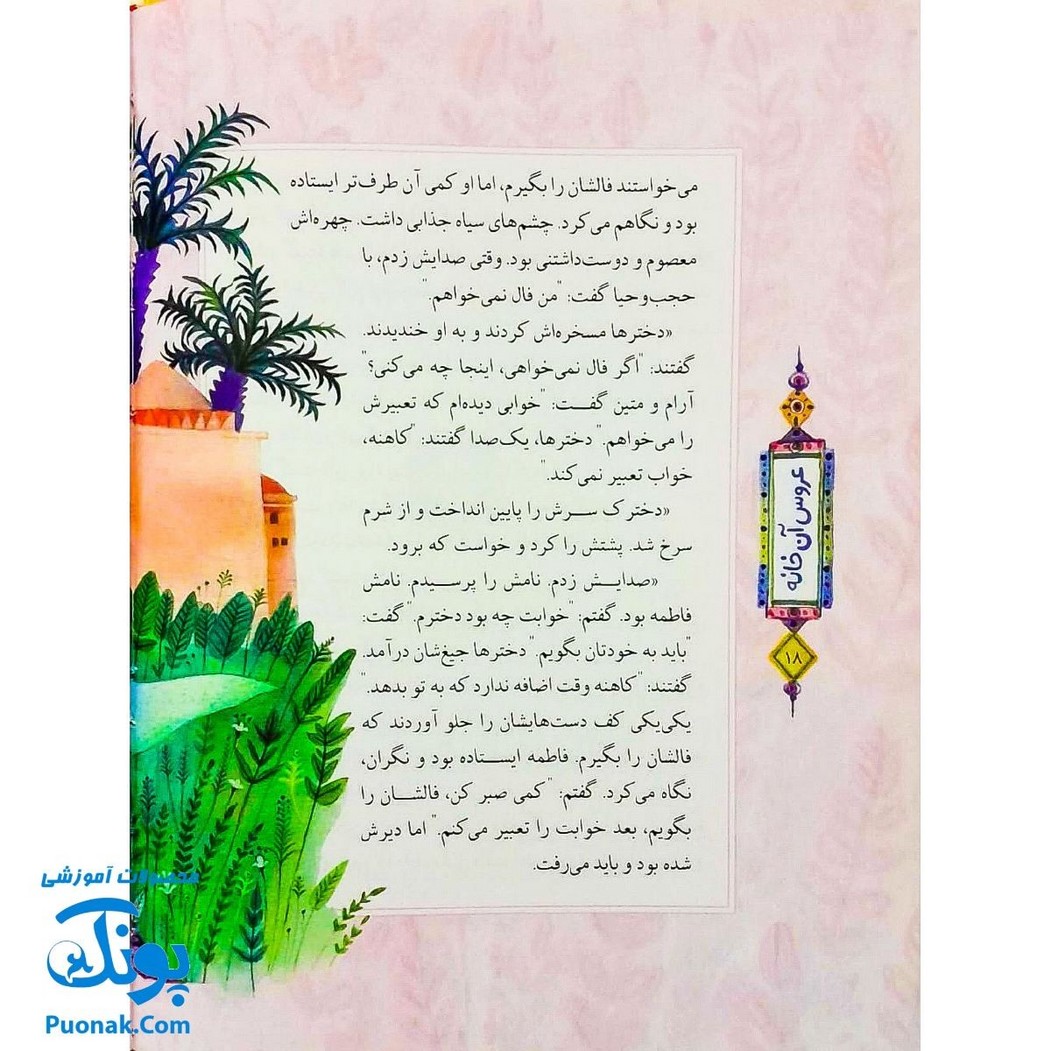 می‌خواستند فالشان را بگیرم، اما او کمی آن طرف‌تر ایستاده
بود و نگاهم می‌کرد. چشم‌های سیاه جذابی داشت. چهره‌اش
معصوم و دوست‌داشتنی بود. وقتی صدایش زدم، با
حجب‌وحیا گفت: "من فال نمی‌خواهم."
«دخترها مسخره‌اش کردند و به او خندیدند.
گفتند: "اگر فال نمی‌خواهی، اینجا چه می‌کنی؟"
آرام و متین گفت: "خوابی دیده‌ام که تعبیرش
را می‌خواهم." دخترها، یک‌صدا گفتند: "کاهنه،
خواب تعبیر نمی‌کند."
«دخترک سرش را پایین انداخت و از شرم
سرخ شد. پشتش را کرد و خواست که برود.
«صدایش زدم. نامش را پرسیدم. نامش
فاطمه بود. گفتم: "خوابت چه بود دخترم." گفت:
"باید به خودتان بگویم." دخترها جیغ‌شان درآمد.
گفتند: "کاهنه وقت اضافه ندارد که به تو بدهد."
یکی‌یکی کف دست‌هایشان را جلو آوردند که
فالشان را بگیرم. فاطمه ایستاده بود و نگران،
نگاه می‌کرد. گفتم: "کمی صبر کن، فالشان را
بگویم، بعد خوابت را تعبیر می‌کنم." اما دیرش
شده بود و باید می‌رفت.
عروس آن خانه
۱۸
محصولات آموزشی
پونک
Puonak.Com